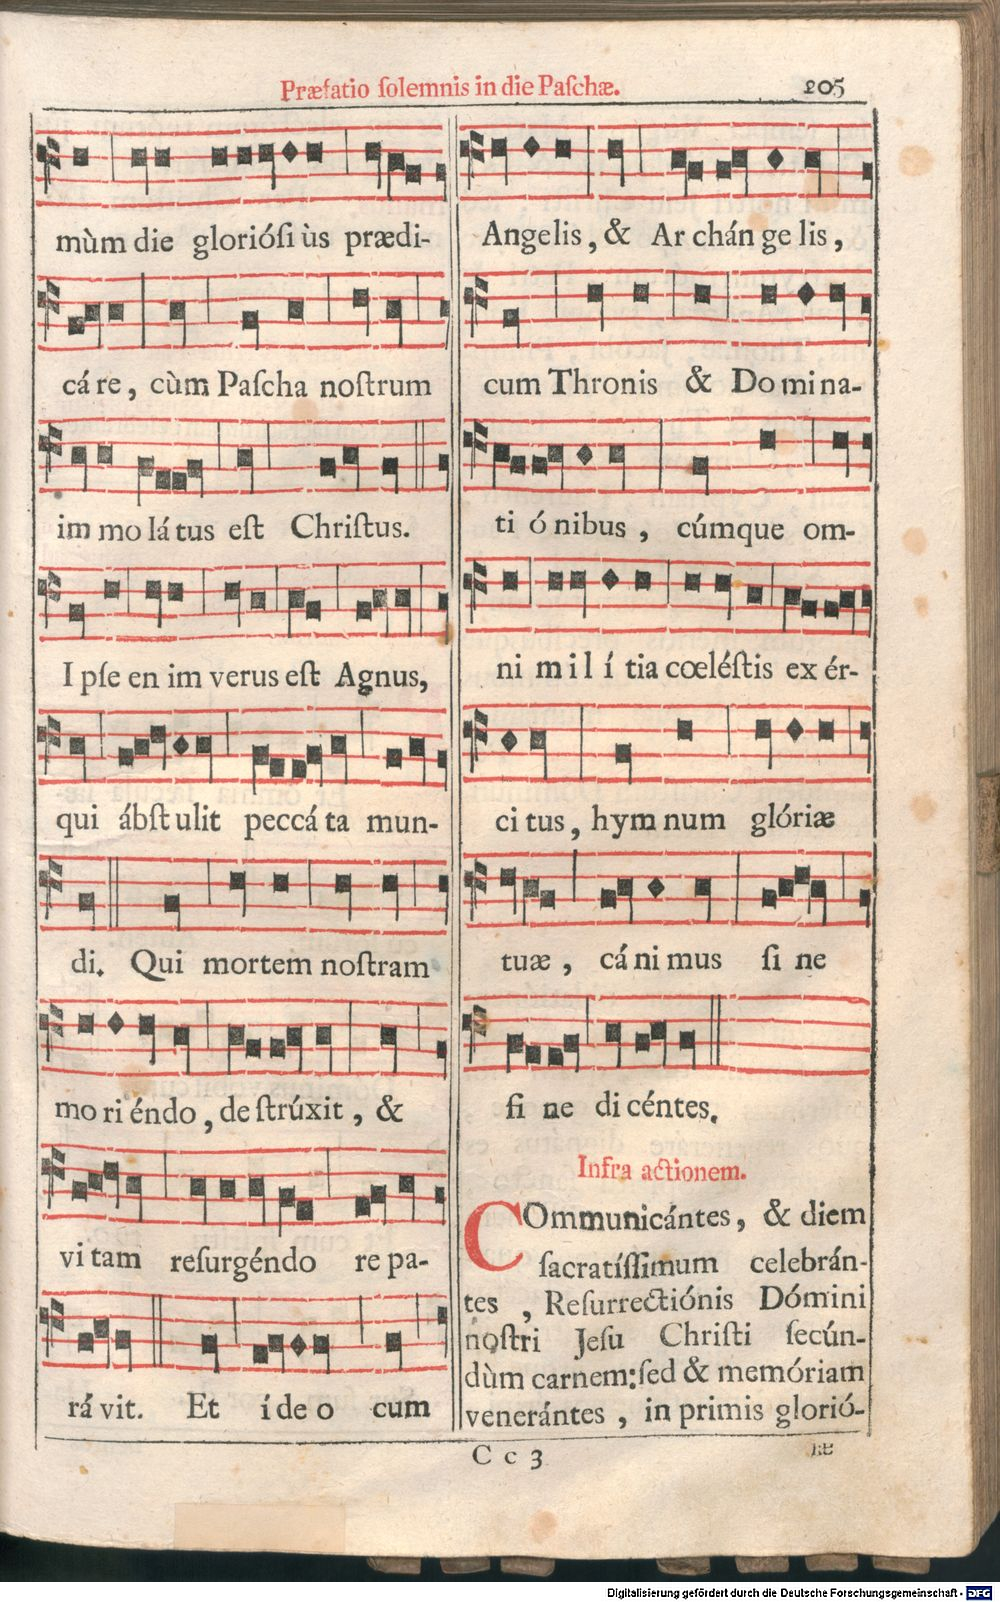 Præfatio ſolemnis in die Paſchæ.
205
mùm die gloriósi ùs prædi-
cá re, cùm Paſcha noſtrum
im mo lá tus eſt Chriſtus.
I pſe en im verus eſt Agnus,
qui ábſt ulit peccá ta mun-
di. Qui mortem noſtram
mo ri éndo, de ſtrúxit, &
vi tam reſurgéndo re pa-
rá vit. Et i de o cum
Angelis, & Ar chán ge lis,
cum Thronis & Do mi na-
ti ó nibus, cúmque om-
ni m i l í tia cœléſtis ex ér-
ci tus, hym num glóriæ
tuæ, cá ni mus ſi ne
ſi ne di céntes.
Infra actionem.
COmmunicántes, & diem
ſacratíſſimum celebrán-
tes, Reſurrectiónis Dómini
noſtri Jeſu Chriſti ſecún-
dùm carnem: ſed & memóriam
venerántes, in primis glorió-
C c 3
Digitalisierung gefördert durch die Deutsche Forschungsgemeinschaft - DFG